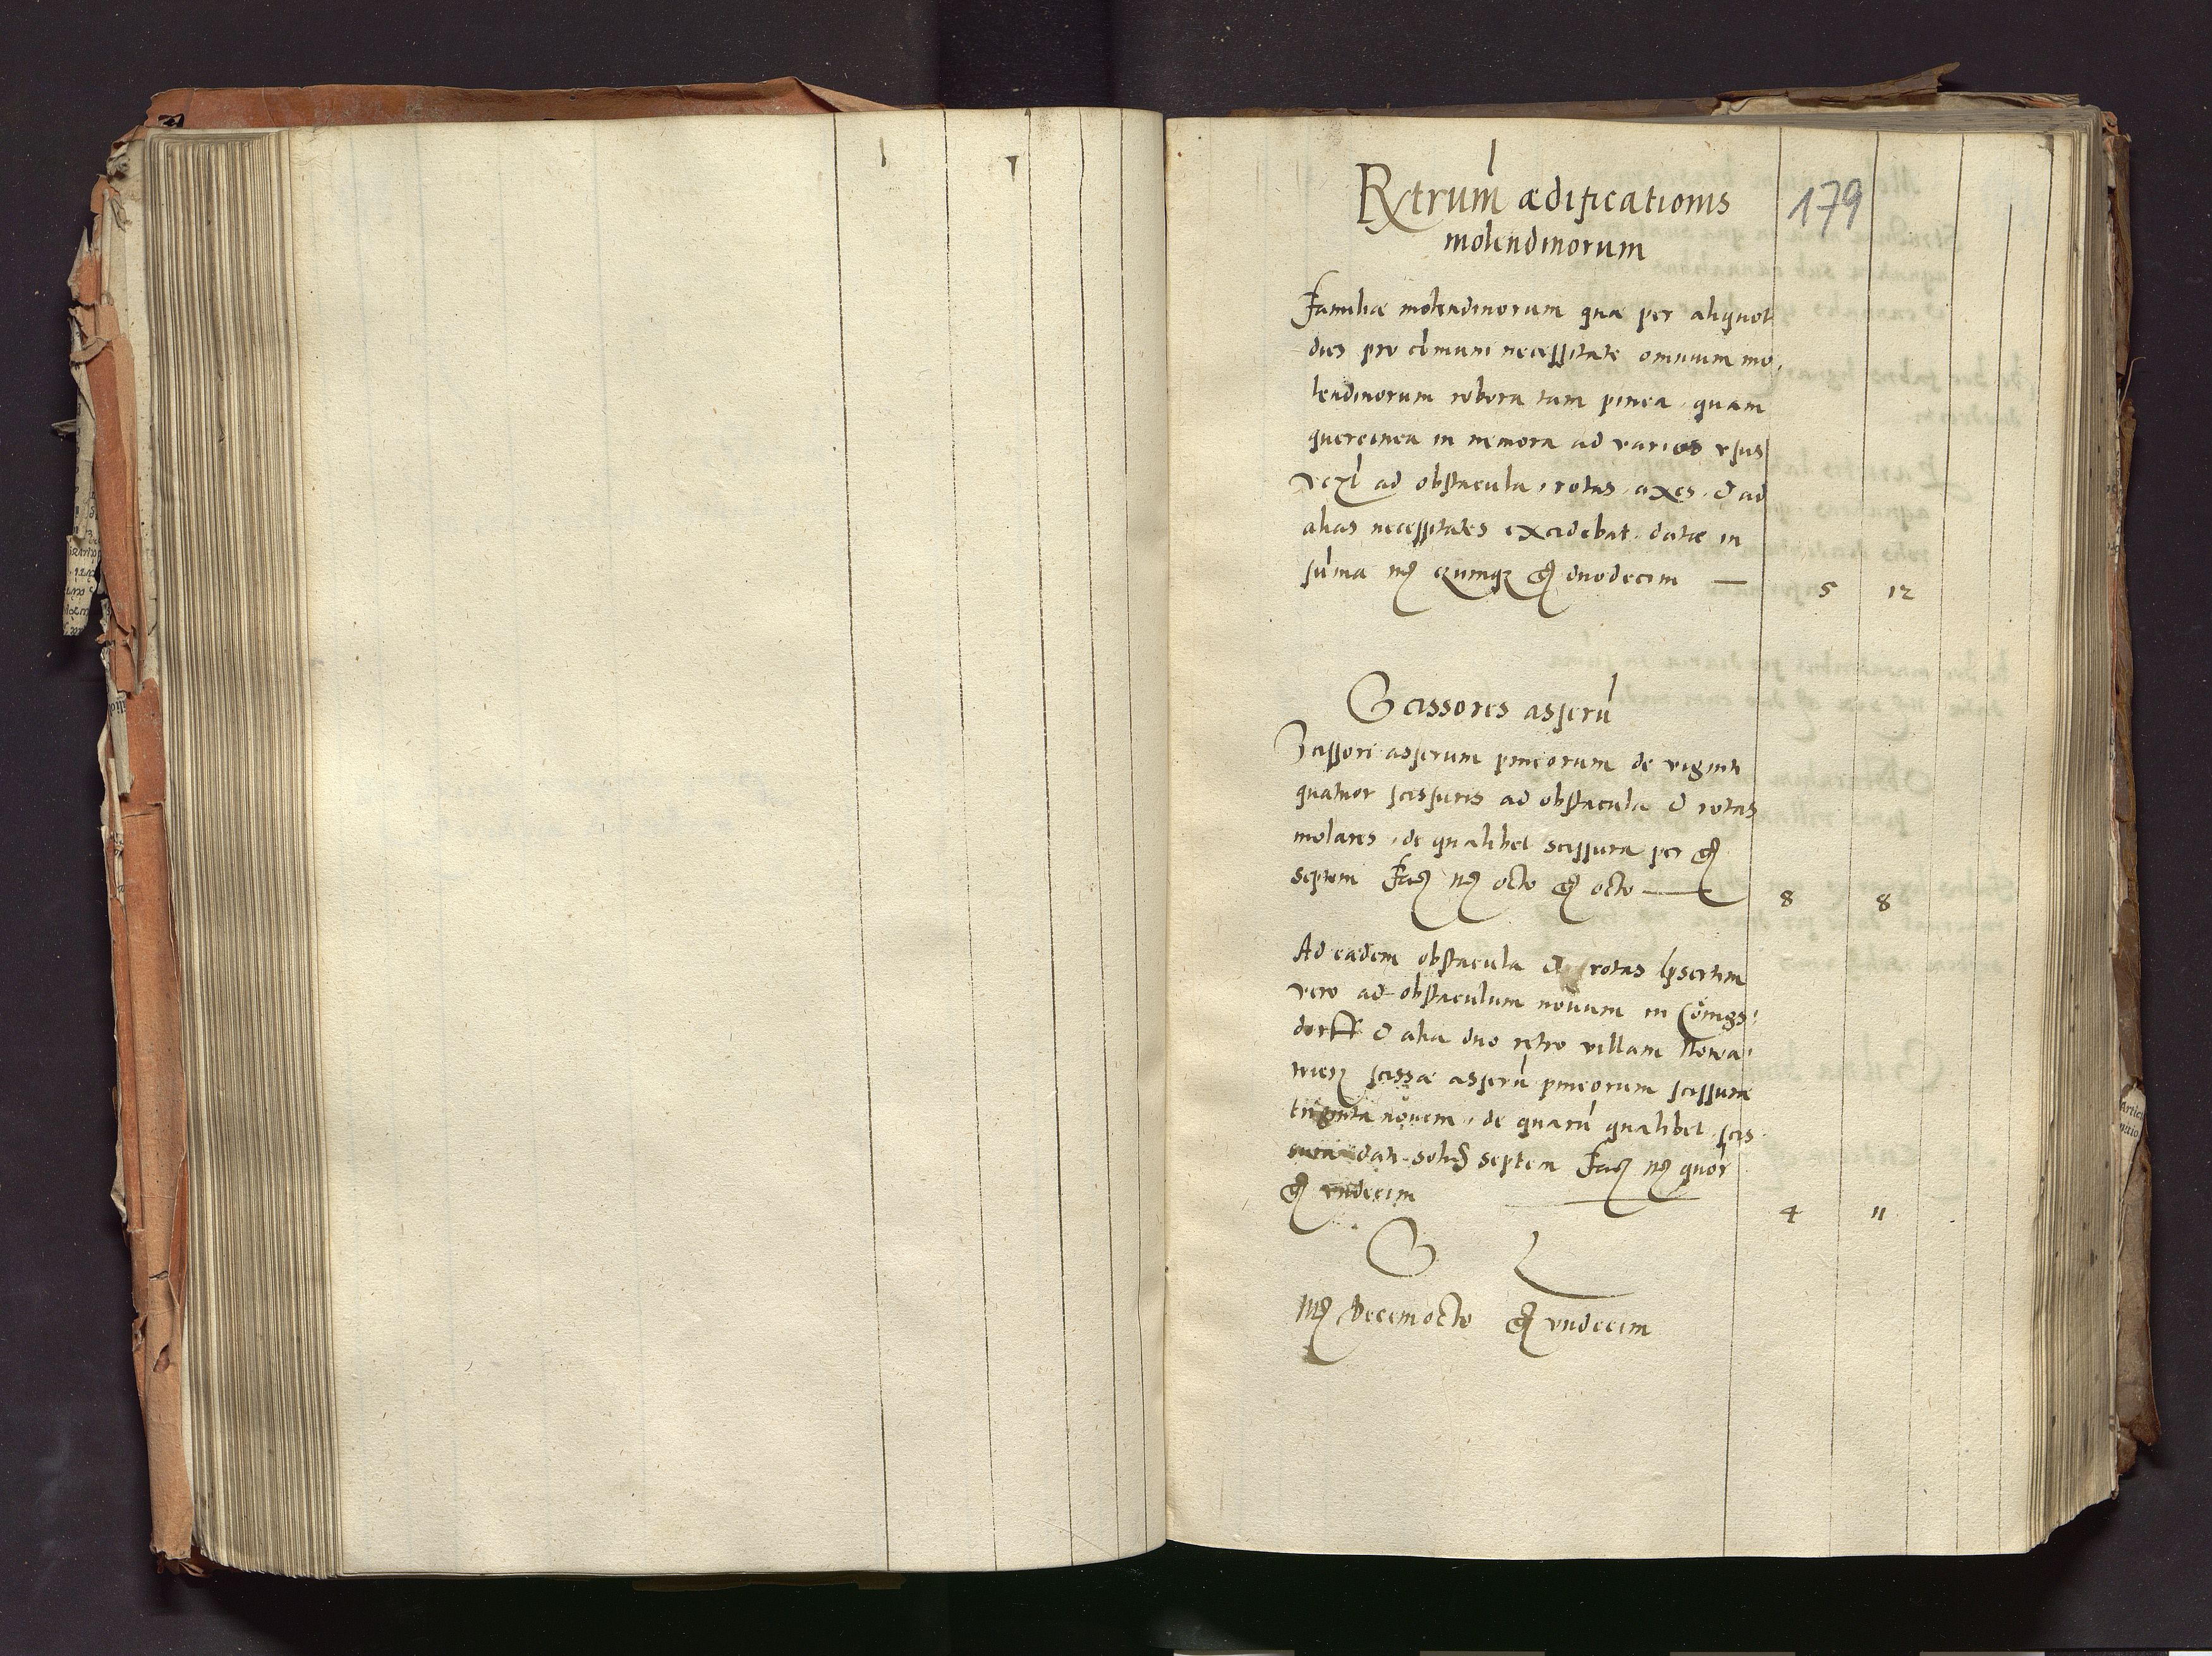 179
Rxtrum ædificationis
molendinorum
Familiæ molendinorum quæ per aliquot
dies pro cōmuni necessitate omnium mo,
lendinorum robora tam pinea quam
quercinea in nemora ad varios vsus
ad obstacula, rotas, axes, & ad
alias necessitates excidebat datæ in
sūma mꝭ quinqꝫ gꝭ duodecim — 5 12
Scissores asserū
Scissori asserum pineorum de viginti
quatuor scissuris ad obstacula & rotas
molares, de qualibet scissura per gꝭ
septem Facꝭ mꝭ octo gꝭ octo — 8 8
Ad eadem obstacula & rotas psertim
vero ad obstaculum nouum in Cönigs,
dorff & alia duo retro villam Nowa,
wiesꝫ scissæ asserū pineorum scissuræ
triginta nouem, de quarū qualibet scis
sura dati solidꝭ septem Facꝭ mꝭ quōr
gꝭ vndecim — 4 11
S
Mꝭ decemocto gꝭ vndecim